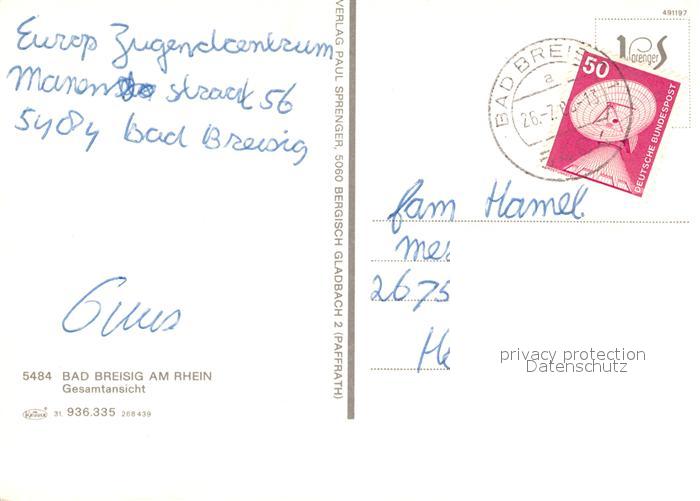 Europ Zugendcentrum
straat 56
5484 bad Breisig
Guus
5484 BAD BREISIG AM RHEIN
Gesamtansicht
Krüger 31. 936.335 268439
VERLAG PAUL SPRENGER, 5060 BERGISCH GLADBACH 2 (PAFFRATH)
491197
Sprenger
BAD BREISIG
a
26.-7.
50
DEUTSCHE BUNDESPOST
fam Hamel
2675
privacy protection
Datenschutz